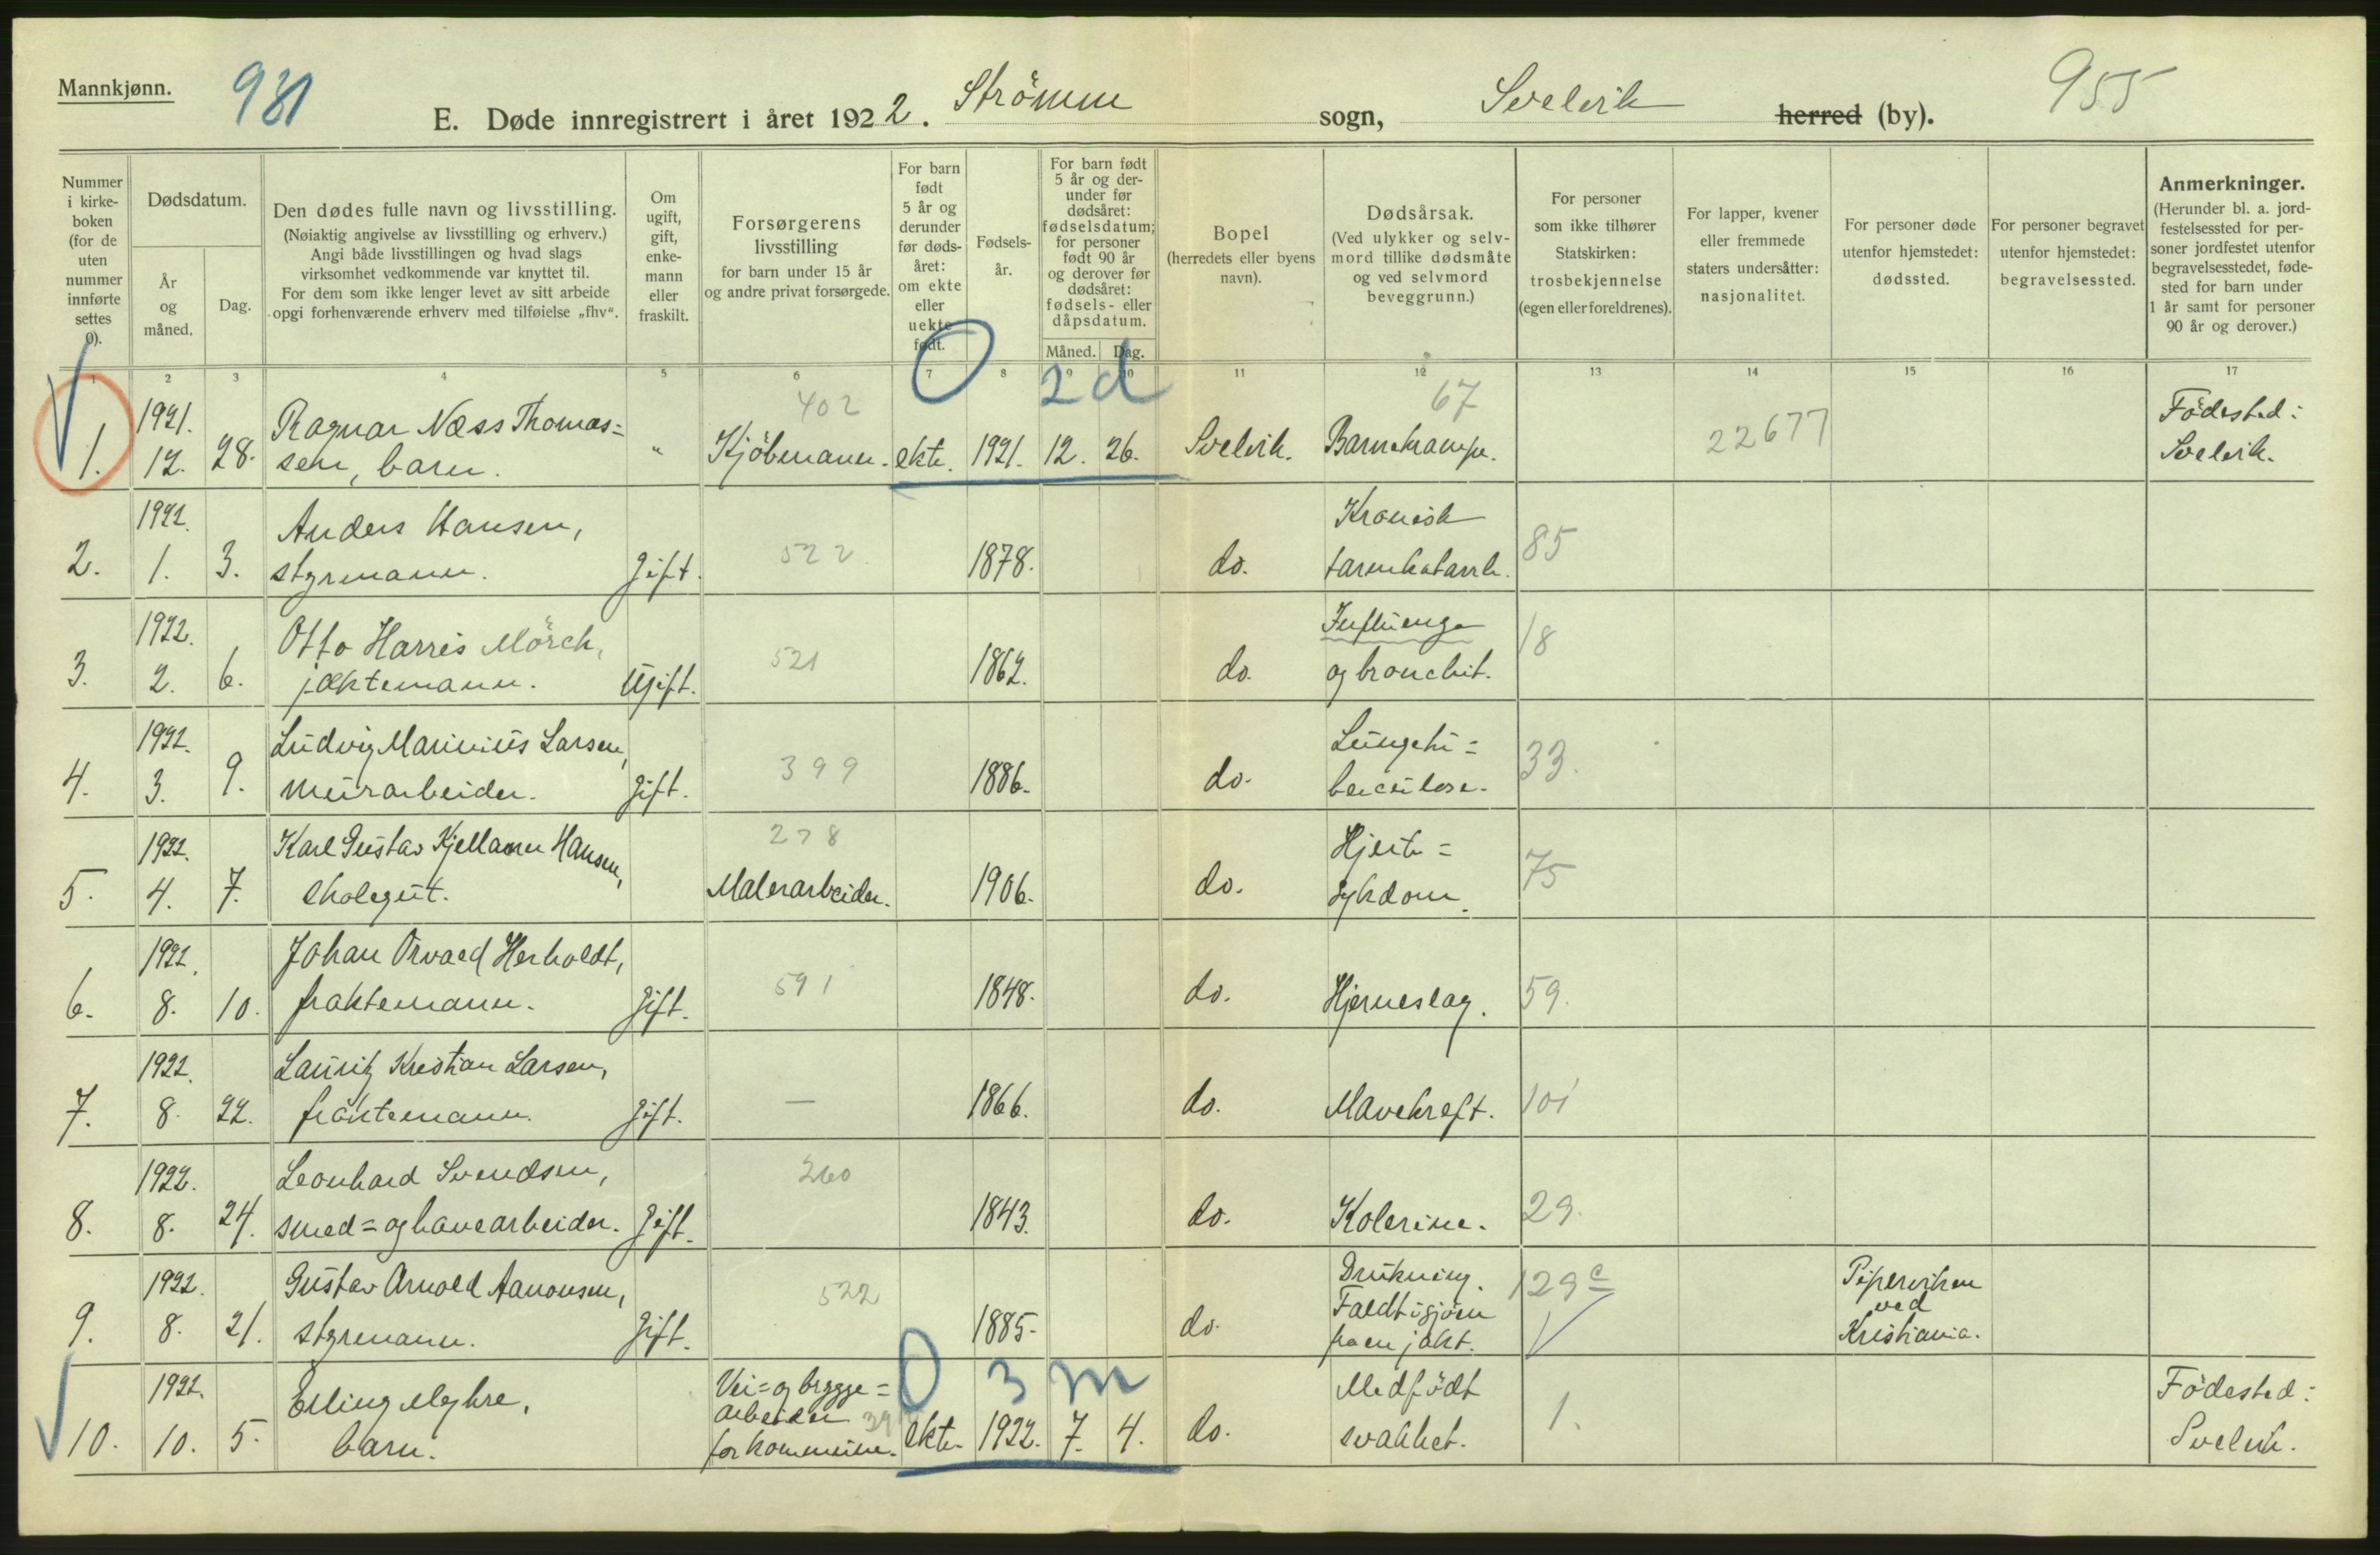 Mannkjønn.
981
E. Døde innregistrert i året 1922. Strömm sogn, Svelvik herred (by).
955
Nummer i kirke-boken (for de uten nummer innførte settes 0).
Dødsdatum.
År og måned.
Dag.
Den dødes fulle navn og livsstilling.
(Nøiaktig angivelse av livsstilling og erhverv.)
Angi både livsstillingen og hvad slags
virksomhet vedkommende var knyttet til.
For dem som ikke lenger levet av sitt arbeide
opgi forhenværende erhverv med tilføielse „fhv“.
Om ugift, gift, enke-mann eller fraskilt.
Forsørgerens livsstilling
for barn under 15 år
og andre privat forsørgede.
For barn født 5 år og derunder før døds-året: om ekte eller uekte født.
Fødsels-år.
For barn født 5 år og der-under før dødsåret: fødselsdatum; for personer født 90 år og derover før dødsåret: fødsels- eller dåpsdatum.
Måned. Dag.
Bopel
(herredets eller byens navn).
Dødsårsak.
(Ved ulykker og selv-mord tillike dødsmåte og ved selvmord beveggrunn.)
For personer som ikke tilhører Statskirken: trosbekjennelse (egen eller foreldrenes).
For lapper, kvener eller fremmede staters undersåtter: nasjonalitet.
For personer døde utenfor hjemstedet: dødssted.
For personer begravet utenfor hjemstedet: begravelsessted.
Anmerkninger.
(Herunder bl. a. jord-festelsessted for per-soner jordfestet utenfor begravelsesstedet, føde-sted for barn under 1 år samt for personer 90 år og derover.)
1 2 3 4 5 6 7 8 9 10 11 12 13 14 15 16 17
0 2 d
1921. Ragnar Næss Thomas= 402 67 Födested:
1. 12. 28. sen, barn. " Kjöbmann. ekte. 1921. 12. 26. Svelvik. Barnekrampe. 22677 Svelvik.
1922. Anders Hansen, Kronisk
2. 1. 3. styrmann. Gift. 522 1878. do. tarmkatarrh. 85
1922. Otto Harris Mörch, Influenza
3. 2. 6. jæktemann. Ugift. 521 1862. do. og bronchit. 18
1922. Ludvig Marinius Larsen, Lungetu=
4. 3. 9. murarbeider. Gift. 399 1886. do. berculose. 33.
1922. Karl Gustav Kjellaner Hansen, 278 Hjerte=
5. 4. 7. skolegut. Malerarbeider. 1906. do. sykdom. 75
1922. Johan Orvald Herholdt,
6. 8. 10. fraktemann. Gift. 591 1848. do. Hjerneslag. 59.
1922. Lauritz Kristian Larsen,
7. 8. 22. fraktemann. Gift. — 1866. do. Mavekreft. 101
1922. Leonhard Svendsen, 260
8. 8. 24. smed= og havearbeider. Gift. 1843. do. Kolerine. 29.
1922. Gustav Arnold Aanonsen, 522 Drukning. 129 c Piperviken
9. 8. 21. styrmann. Gift. 1885. do. Faldt i sjöen ved
fra en jakt. Kristiania.
0 3 m
1922. Erling Myhre, Vei= og brygge= Medfödt Födested:
10. 10. 5. barn. arbeider ekte. 1922. 7. 4. do. svakhet. 1. Svelvik.
for kommune.